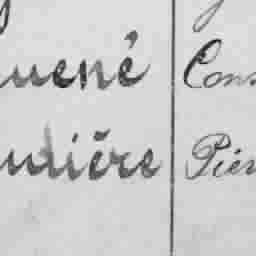 uené Cons
udière Pier